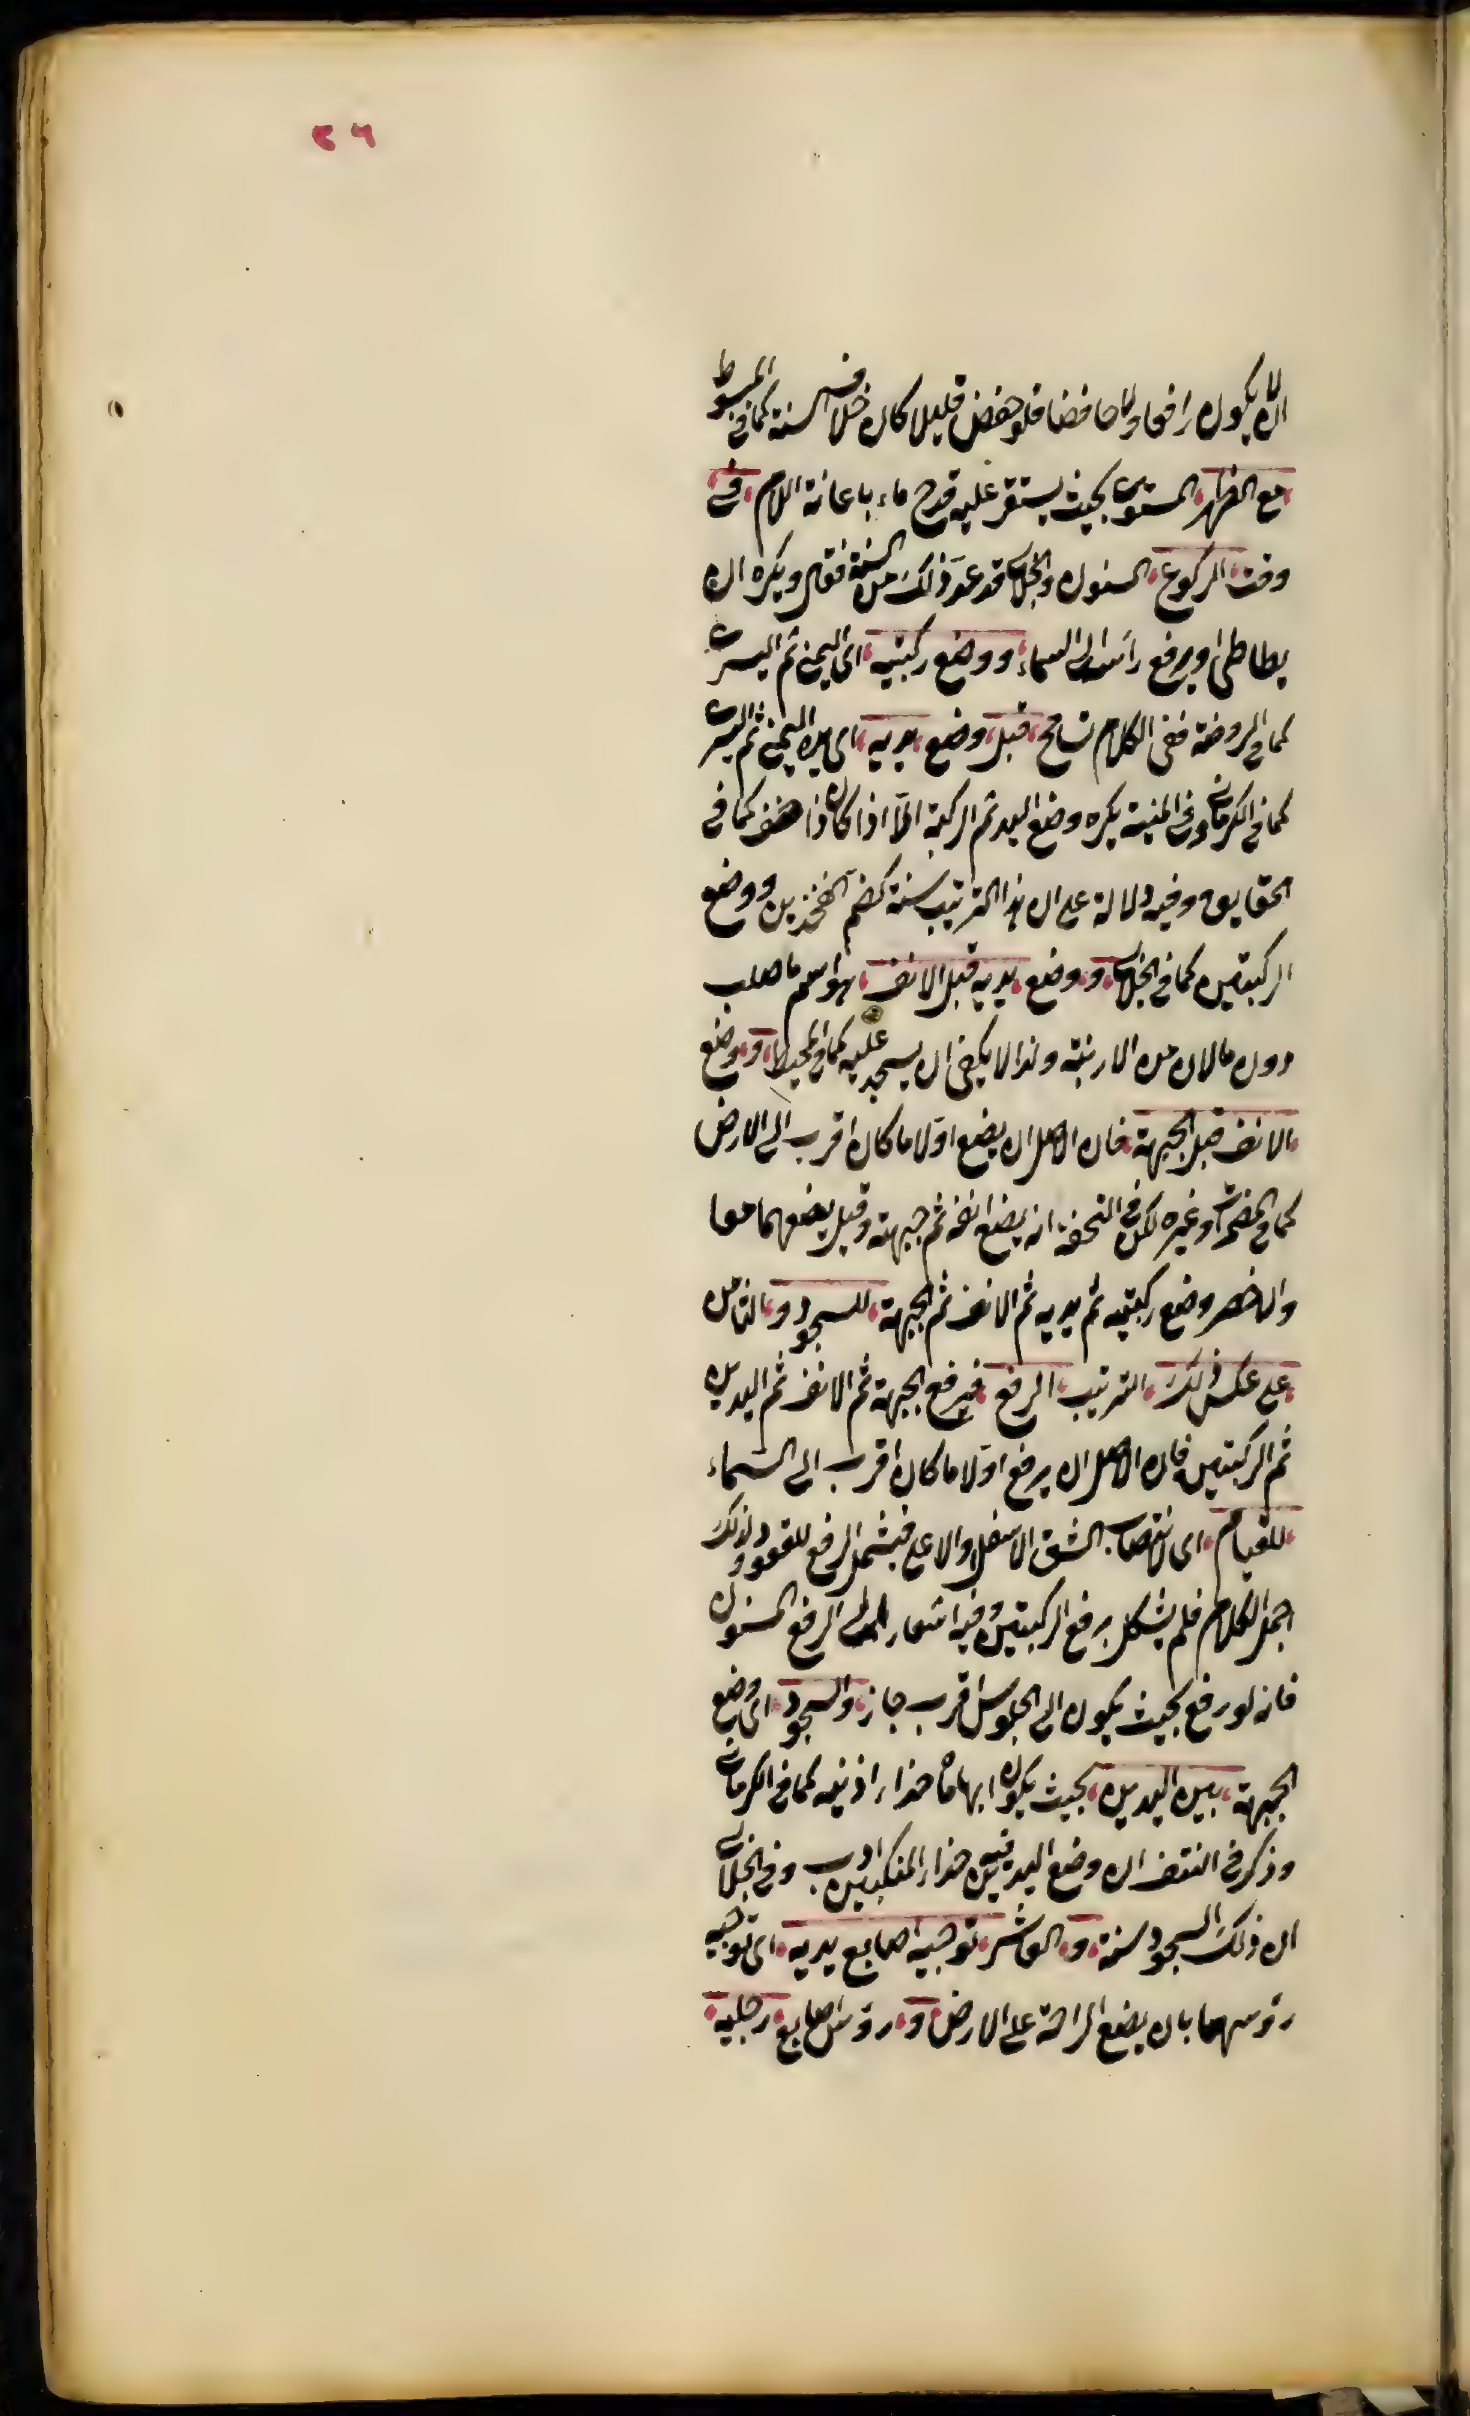 ٢٦
ان لا يكون رافعا ولا خافضا فلو خفض قليلا كان خلاف السنة كما في المبسوط
مع الظهر المستوي بحيث يستقر عليه قدح ماء باعانة اللام في
وقت الركوع المسنون والجلابي قد عد ذلك من السنة فقال ويكره ان
يطاطئ او يرفع راسه الى السماء ووضع ركبتيه اي اليمنى ثم اليسرى
كما في الروضة ففي الكلام تسامح قبل وضع يديه اي يده اليمنى ثم اليسرى
كما في الكرماني وفي المنية يكره وضع اليد ثم الركبة الا اذا كان ذا خف كما في
الحقايق وفيه دلالة على ان هذا الترتيب سنة كضم الفخذين ووضع
الركبتين كما في الجلابي و وضع يديه قبل الانف هو اسم ما صلب
دون ما لان من الارنبة ولذا لا يكفي ان يسجد عليه كما في المحيط و وضع
الانف قبل الجبهة فان الاصل ان يضع اولا ما كان اقرب الى الارض
كما في المضمرات وغيره لكن في التحفة انه يضع انفه ثم جبهته وقيل يضعهما معا
والاخصر وضع ركبتيه ثم يديه ثم الانف ثم الجبهة للسجود و الثامن
على عكس ذلك الترتيب الرفع فيرفع الجبهة ثم الانف ثم اليدين
ثم الركبتين فان الاصل ان يرفع اولا ما كان اقرب الى السماء
للقيام اي لانتصاب الشق الاسفل والاعلى فيشمل الرفع للقعود ولذلك
اجمل الكلام فلم يشكل برفع الركبتين وفيه اشعار الى الرفع المسنون
فانه لو رفع بحيث يكون الى الجلوس اقرب جاز والسجود اي وضع
الجبهة بين اليدين بحيث يكون ابهاماه حذاء اذنيه كما في الكرماني
وذكر في النتف ان وضع اليدين فيه حذاء المنكبين ادب وفي الجلابي
ان ذلك السجود سنة و العاشر توجيه اصابع يديه اي توجيه
رؤسهما بان يضع الراحة على الارض و رؤس اصابع رجليه